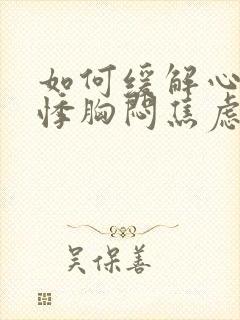 如何缓解心
悸胸闷焦虑
吴保善